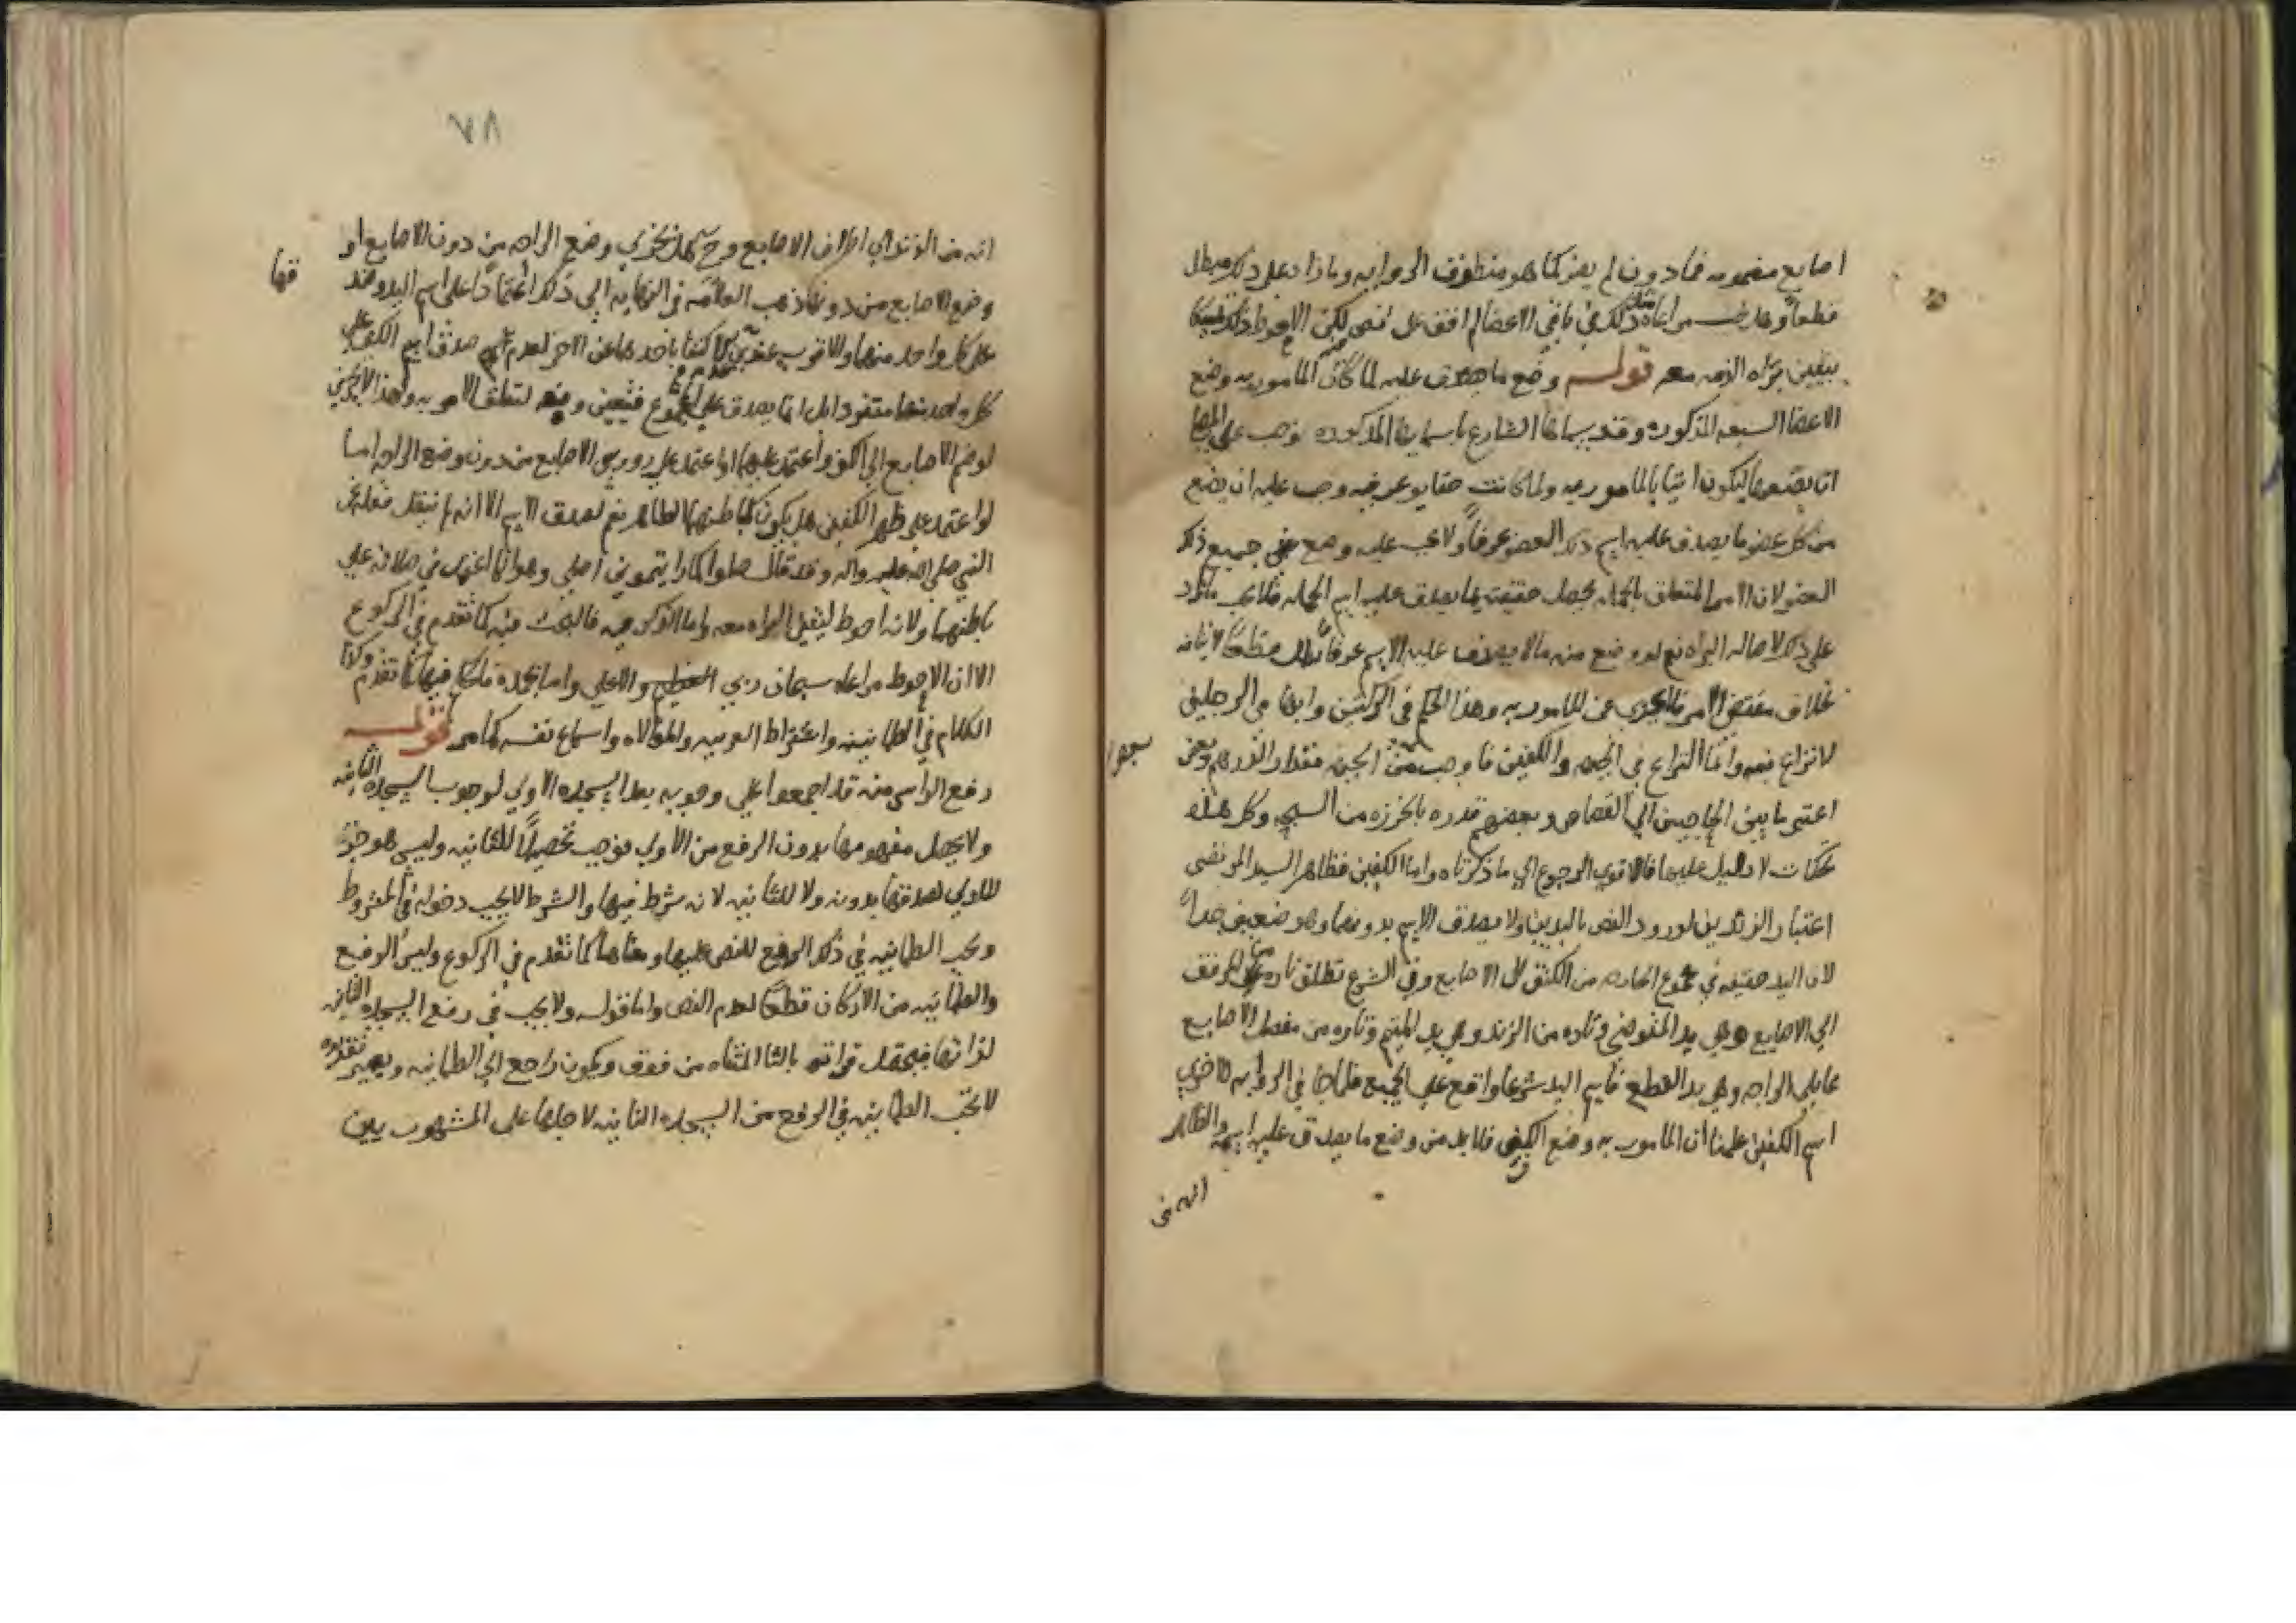 اصابع مضمومه فمادون لم يضر كما هو منطوق الروايه وما زاد على ذلك مبطل
قطعاً وهل مراعاه ذلك في باقي الاعضا لم اقف على نص لكن الاحوط ذلك
بيقين براه الذمه معه قوله وضع ما يصدق عليه لما كان المامور به وضع
الاعضا السبعه المذكوره وقد سماها الشارع باسمايها المذكوره وجب على المصلي
ان يضعها ليكون اتيا بالمامور به ولما كانت حقايق عرفيه وجب عليه ان يضع
من كل عضو ما يصدق عليه اسم ذلك العضو عرفاً ولا يجب عليه وضع جميع ذلك
العضو لان الامر المتعلق بالجمله يحصل حقيقته بما يصدق عليه اسم الجمله فلا يجب ما زاد
على ذلك لاصاله البراه نعم لو وضع منه مالا يصدق عليه الاسم عرفاً بطل قطعاً لاتيانه
بخلاف مقتضى الامر فلا يجزي عن المامور به وهذا الحكم في الركبتين وابهامي الرجلين
لا نزاع فيه وانما النزاع في الجبهه والكفين فاوجب من الجبهه مقدار الدرهم وبعض
بعضها
اعتبر ما بين الحاجبين الى القصاص وبعضهم قدره بالخرزه من السبح وكل هذه
تحكمات لا دليل عليها فالاقوي الرجوع الي ما ذكرناه واما الكفين فظاهر السيد المرتضى
اعتبار الزندين لورود النص باليدين ولا يصدق الاسم بدونهما وهو ضعيف جداً
لان اليد حقيقه في مجموع الجارحه من الكتف الى الاصابع وفي الشرع تطلق تاره على المرفق
الي الاصابع وهي يد المتوضي وتاره من الزند وهي يد المتيمم وتاره من مفصل الاصابع
مما يلي الراحه وهي يد القطع فاسم اليد شرعا واقع علي الجميع فلما جا في الروايه الاخري
اسم الكفين علمنا ان المامور به وضع الكفين فلا بد من وضع ما يصدق عليه اسمه والظاهر
انه من
٧٨
انه من الزند الي اطراف الاصابع وح هل يجزي وضع الراحه من دون الاصابع او
وضع الاصابع من دونها ذهب العلامه في النهايه الي ذلك اعتماداً على اسم اليد وصد
قها
على كل واحد منهما والاقرب عندي عدم الاكتفا باحدهما عن الاخر لعدم صدق اسم الكف علي
كل واحد منهما منفردا بل انما يصدق علي المجموع فيتعين وضعه لتعلق الامر به ولهذا لا يجزي
لو ضم الاصابع الي الكف واعتمد عليها او اعتمد علي رووس الاصابع من دون وضع الراحه اما
لو اعتمد على ظهر الكفين هل يكون كباطنهما الظاهر نعم لصدق الاسم الا انه لم ينقل فعله عن
النبي صلى الله عليه واله وقد قال صلوا كما رايتموني اصلي وهو انما اعتمد في صلاته علي
باطنهما ولانه احوط ليتقين البراه معه واما الذكر فيه فالبحث فيه كما تقدم في الركوع
الا ان الاحوط مراعاه سبحان ربي العظيم والاعلي وامابحمده فالحكم فيها كما تقدم وكذا
الكلام في الطمانينه واشتراط العربيه والموالاه واسماع نفسه كما مر قوله
رفع الراس منه قد اجمعوا علي وجوبه بعد السجده الاولي لوجوب السجده الثانيه
ولا يحصل مفهومها بدون الرفع من الاولي فوجب تحصيلاً للثانيه وليس هو جزءً
للاولي لصدقها بدونه ولا للثانيه لانه شرط فيها والشرط لا يجب دخوله في المشروط
ويجب الطمانينه في ذلك الرفع للنص عليها ومعناها كما تقدم في الركوع وليس الرفع
والطمانينه من الاركان قطعاً لعدم النص واما قوله ولا يجب في رفع السجده الثانيه
لذاتها فيحتمل قراته بالتا المثناه من فوق ويكون راجع الي الطمانينه ويصير تقديره
لا تجب الطمانينه في الرفع من السجده الثانيه لاجلها على المشهور بين